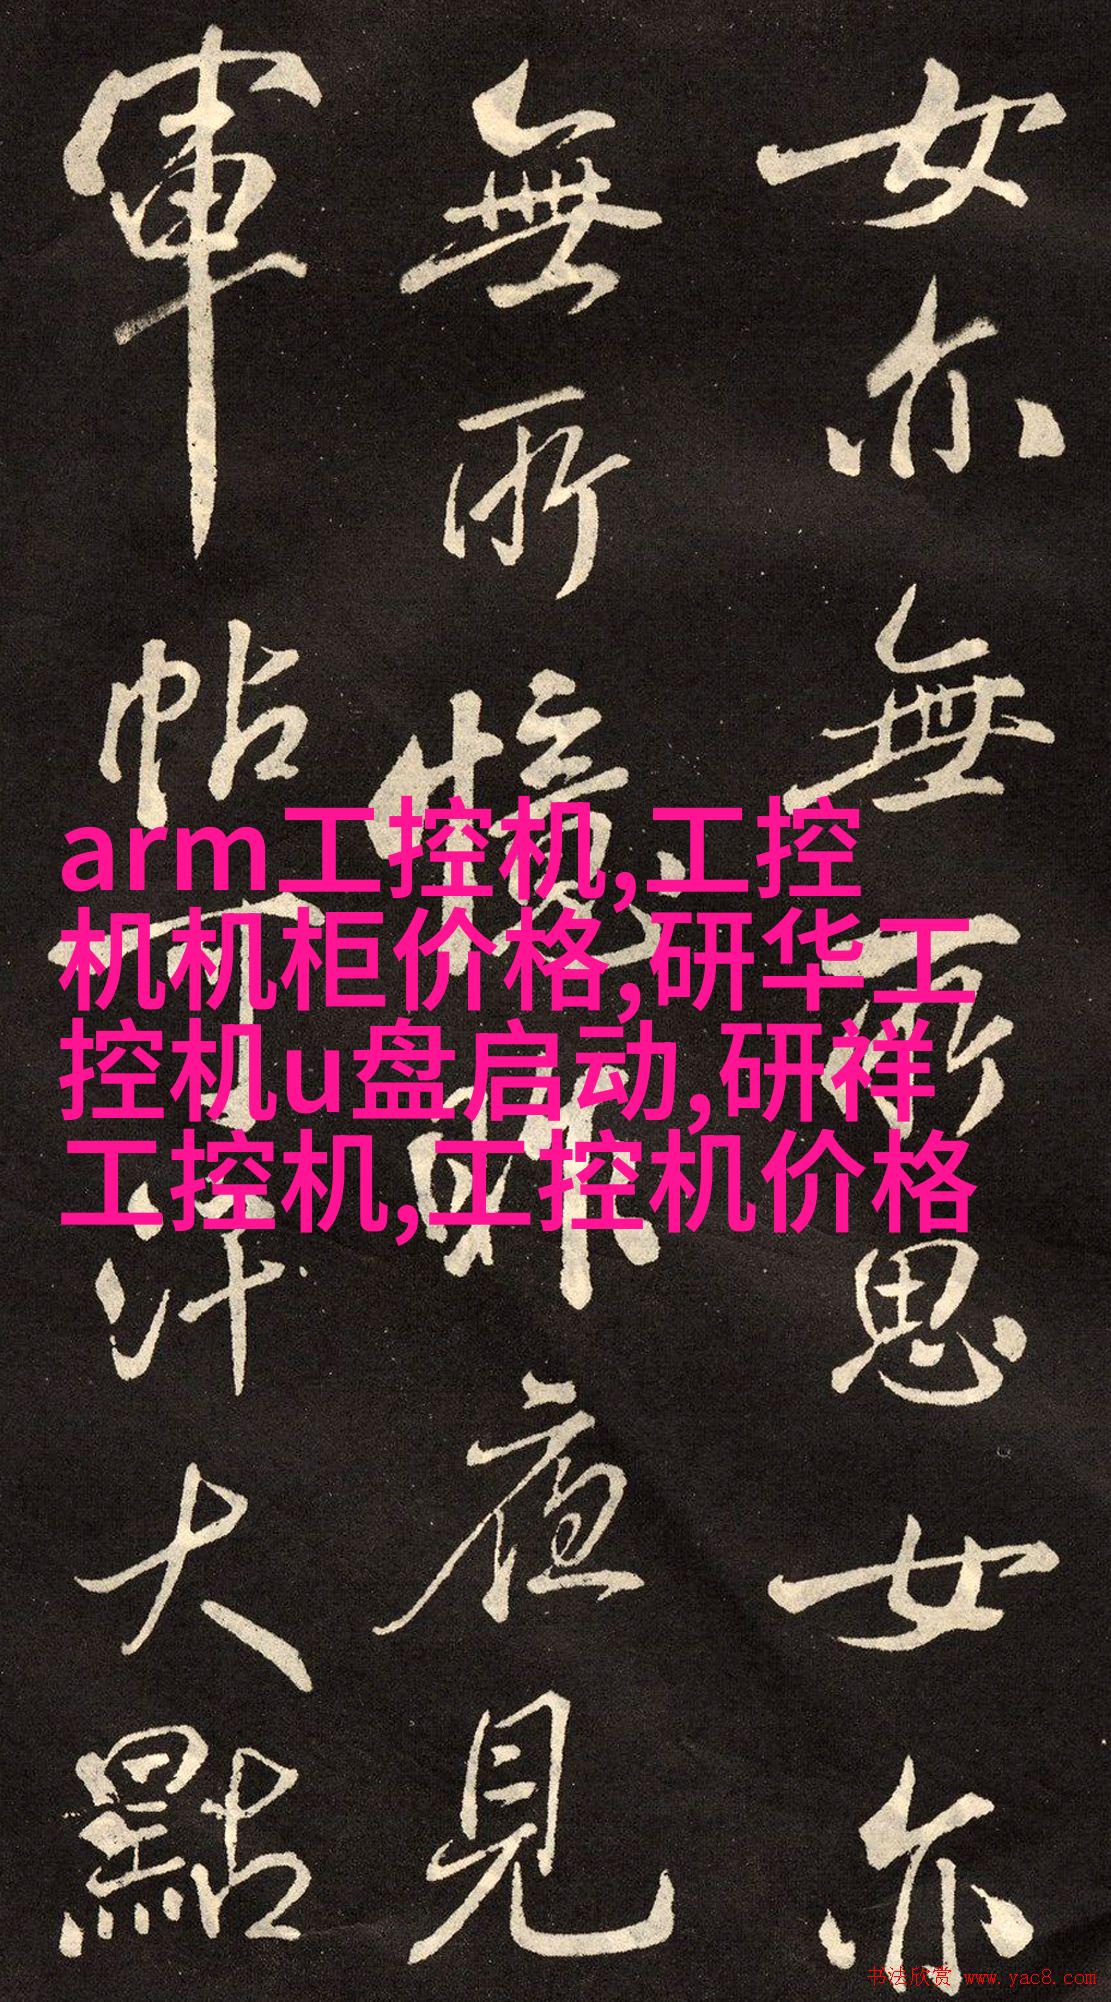 女亦無所思女亦
無所憶昨夜見
軍帖可汗大點
arm工控机,工控
机机柜价格,研华工
控机u盘启动,研祥
工控机,工控机价格
书法欣赏 www.yac8.com